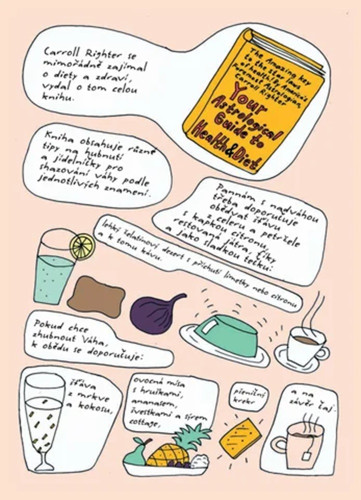 Carroll Righter se
mimořádně zajímal
o diety a zdraví,
vydal o tom celou
knihu.
The Amazing key
to the star laws
of health by America's
Foremost Astrologian,
Carroll Righter
Your
Astrological
Guide to
Health&Diet
Kniha obsahuje různé
tipy na hubnutí
a jídelníčky pro
shazování váhy podle
jednotlivých znamení.
Pannám s nadváhou
třeba doporučuje
obědvat šťávu
z celeru a petržele
s kapkou citronu,
restovaná játra, fíky
a jako sladkou tečku:
lehký želatinový dezert s příchutí limetky nebo citronu
a k tomu kávu.
Pokud chce
zhubnout Váha,
k obědu se doporučuje:
šťáva
z mrkve
a kokosu,
ovocná mísa
s hruškami,
ananasem,
švestkami a sýrem
cottage,
pšeniční
krekr
a na
závěr čaj.